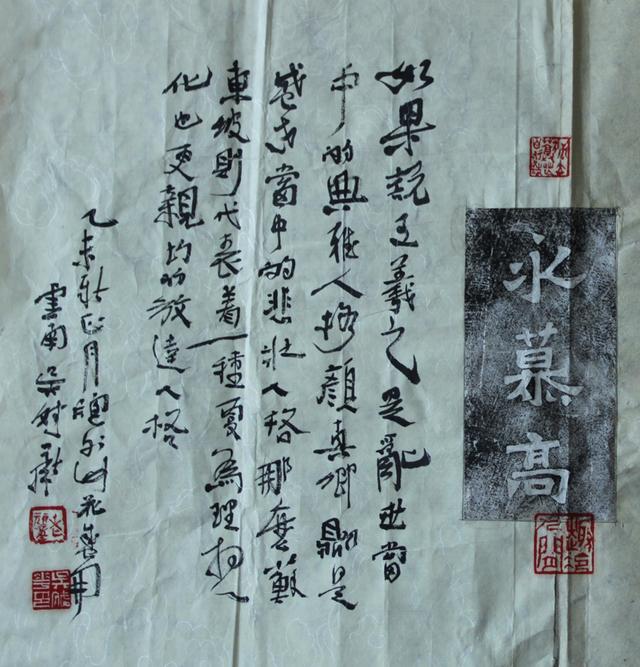 永慕高
如果說王羲之是亂世當
中的典雅人格顏真卿則是
盛世當中的悲壯人格那麼蘇
東坡則代表着一種更為理想
化也更親切的放達人格
乙未新正月牕外山花盛開
雲南吴